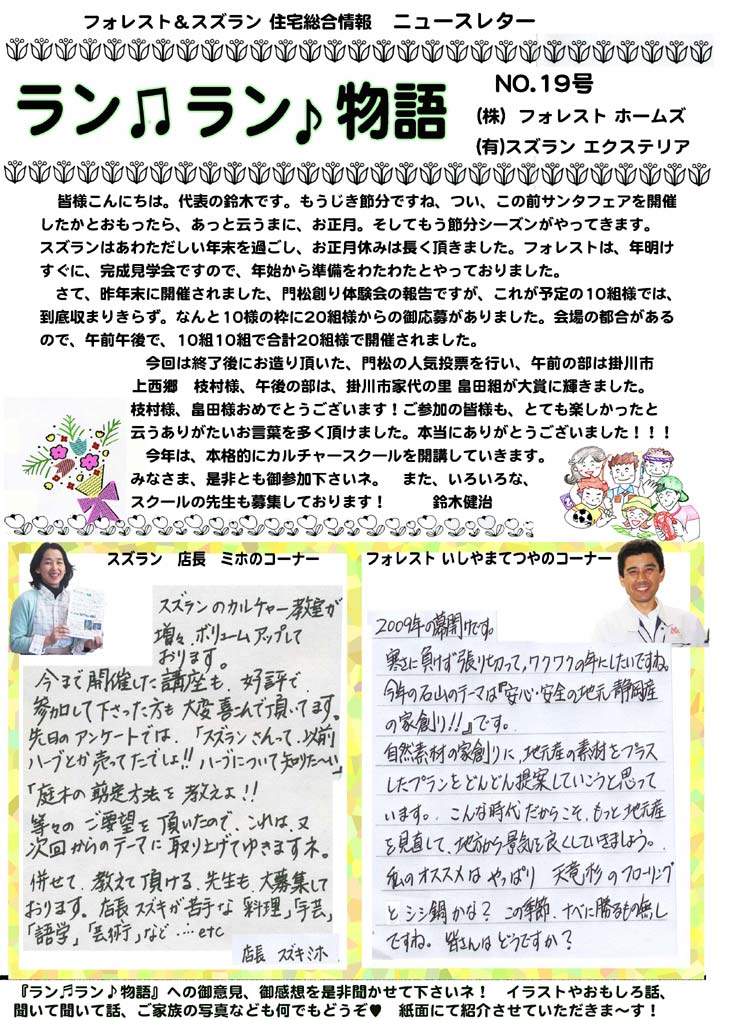 フォレスト＆スズラン 住宅総合情報　ニュースレター
ラン♫ラン♪物語
NO.19号
(株) フォレスト ホームズ
(有)スズラン エクステリア
皆様こんにちは。代表の鈴木です。もうじき節分ですね、つい、この前サンタフェアを開催
したかとおもったら、あっと云うまに、お正月。そしてもう節分シーズンがやってきます。
スズランはあわただしい年末を過ごし、お正月休みは長く頂きました。フォレストは、年明け
すぐに、完成見学会ですので、年始から準備をわたわたとやっておりました。
さて、昨年末に開催されました、門松創り体験会の報告ですが、これが予定の10組様では、
到底収まりきらず。なんと10様の枠に20組様からの御応募がありました。会場の都合がある
ので、午前午後で、10組10組で合計20組様で開催されました。
今回は終了後にお造り頂いた、門松の人気投票を行い、午前の部は掛川市
上西郷　枝村様、午後の部は、掛川市家代の里 畠田組が大賞に輝きました。
枝村様、畠田様おめでとうございます！ご参加の皆様も、とても楽しかったと
云うありがたいお言葉を多く頂けました。本当にありがとうございました！！！
今年は、本格的にカルチャースクールを開講していきます。
みなさま、是非とも御参加下さいネ。　また、いろいろな、
スクールの先生も募集しております！　　鈴木健治
スズラン　店長　ミホのコーナー
スズランのカルチャー教室が
増々、ボリュームアップして
おります。
今まで開催した講座も、好評で、
参加して下さった方も大変喜こんで頂いてます。
先日のアンケートでは、「スズランさんって、以前
ハーブとか売ってたでしょ!! ハーブについて知りた〜い」
「庭木の剪定方法を教えよ!!
等々の ご要望を頂いたので、これは、又
次回からのテーマに取り上げてゆきますネ。
併せて、教えて頂ける、先生も、大募集して
おります。店長スズキが苦手な「料理」「手芸」
「語学」「芸術」など‥‥etc
店長　スズキミホ
フォレスト いしやまてつやのコーナー
2009年の幕開けです。
寒さに負けず張り切って，ワクワクの年にしたいですね。
今年の石山のテーマは『安心・安全の地元 静岡産
の家創り!!』です。
自然素材の家創りに、地元産の素材をプラス
したプランをどんどん提案していこうと思って
います。こんな時代だからこそ、もっと地元産
を見直して、地方から景気を良くしていきましょう。
私のオススメは やっぱり　天竜杉のフローリング
と シシ鍋かな？ この季節、ナベに勝るもの無し
ですね。皆さんはどうですか？
『ラン♫ラン♪物語』への御意見、御感想を是非聞かせて下さいネ！　イラストやおもしろ話、
聞いて聞いて話、ご家族の写真なども何でもどうぞ♥　紙面にて紹介させていただきま〜す！